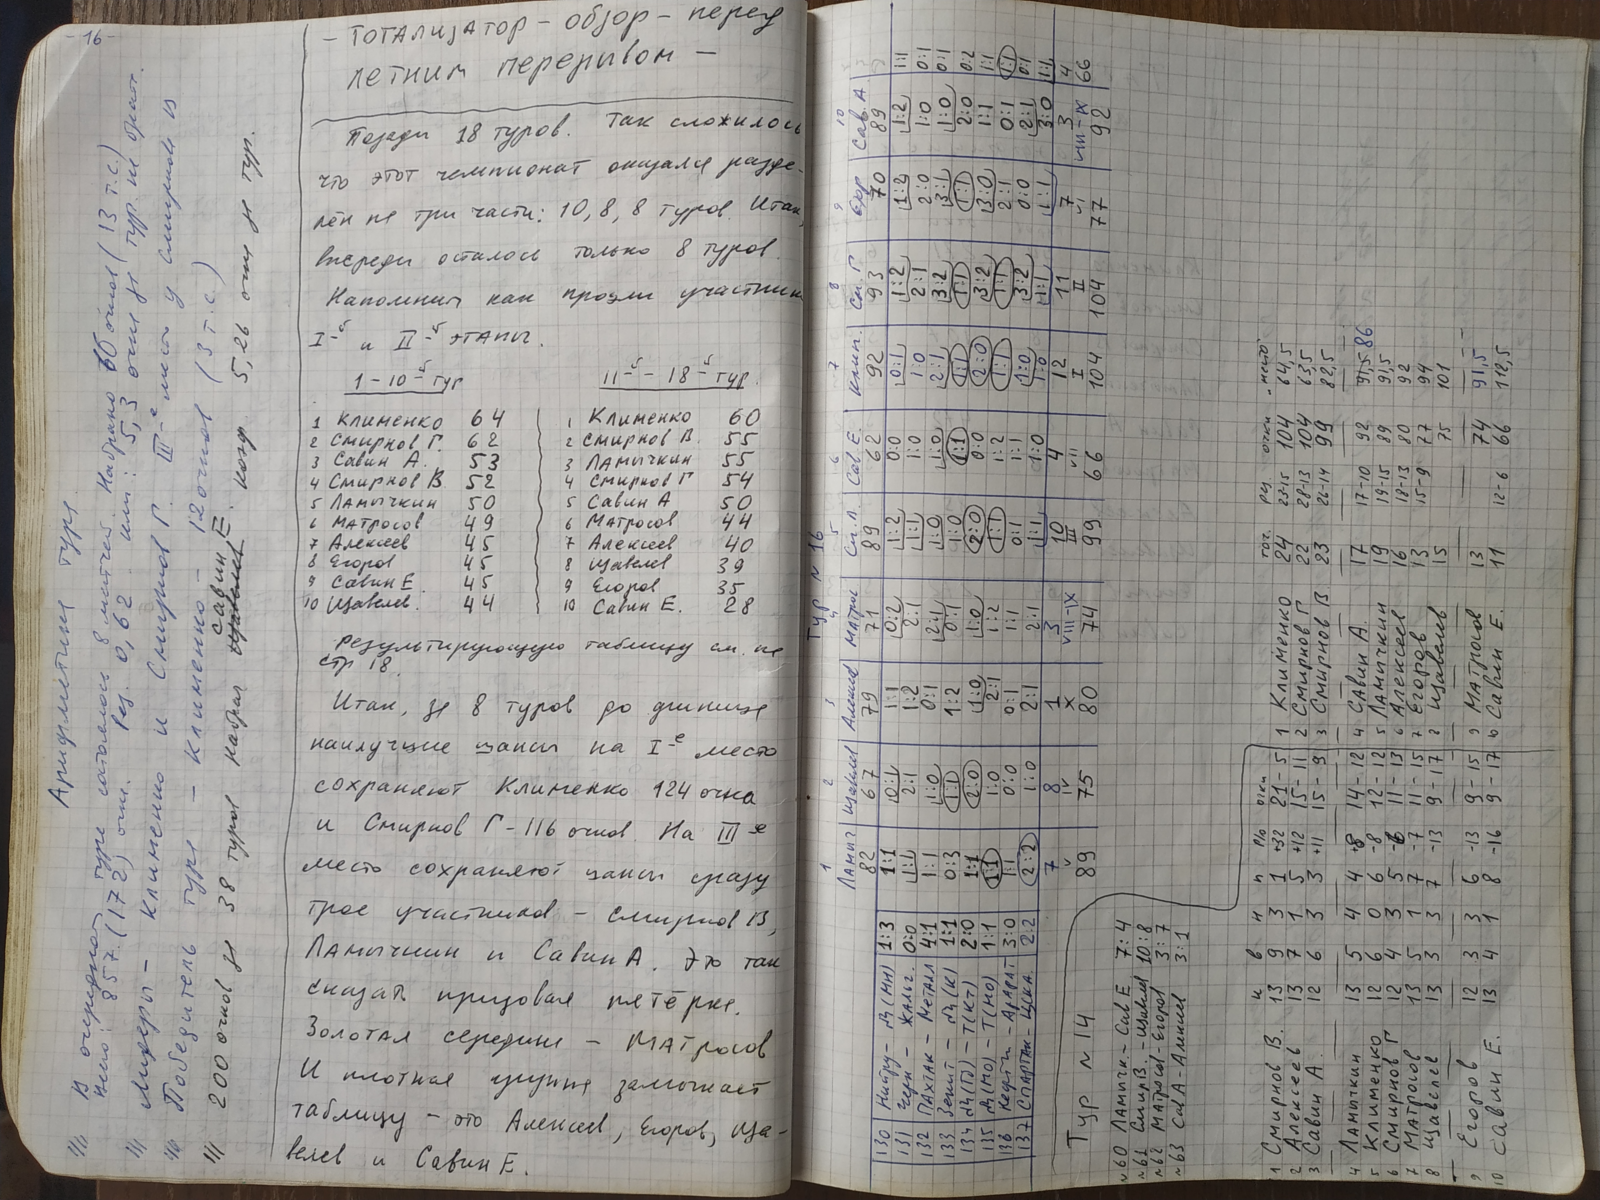 - 16 -
Арифметика тура
В очередном туре состоялось 8 матчей. Набрано 66 очков (13 т.с.)
всего: 857 (172) очк. Рез. 0,62 или: 5,3 очка за тур на участ.
Лидеры - Клименко и Смирнов Г. III-е место у Смирнова
Победитель тура - Клименко - 12 очков (3 т.с.)
200 очков за 38 туров набрал Савин Е. коэф. 5,26 очка за тур.
- Тотализатор - обзор - перед
летним перерывом -
Позади 18 туров. Так сложилось
что этот чемпионат оказался разде-
лён на три части: 10, 8, 8 туров. Итак,
впереди осталось только 8 туров.
Напомним как прошли участники
I-й и II-й этапы.
1 - 10-й тур
1 Клименко 64
2 Смирнов Г. 62
3 Савин А. 53
4 Смирнов В. 52
5 Ламычкин 50
6 Матросов 49
7 Алексеев 45
8 Егоров 45
9 Савин Е. 45
10 Щавелев. 44
11-й - 18-й тур.
1 Клименко 60
2 Смирнов В. 55
3 Ламычкин 55
4 Смирнов Г 54
5 Савин А 50
6 Матросов 44
7 Алексеев 40
8 Щавелев 39
9 Егоров 35
10 Савин Е. 28
Результирующую таблицу см. на
стр 18.
Итак, за 8 туров до финиша
наилучшие шансы на I-е место
сохраняют Клименко 124 очка
и Смирнов Г - 116 очков. На III-е
место сохраняют шансы сразу
трое участников - Смирнов В,
Ламычкин и Савин А. Это так
сказать призовая пятёрка.
Золотая середина - Матросов
И плотная группа замыкает
таблицу - это Алексеев, Егоров, Ща-
велев и Савин Е.
Тур № 16
1 2 3 4 5 6 7 8 9 10
Ламыч Щавелев Алексеев Матрос См. Л Сав Е. Клим. См. Г Егор Сав. А
82 67 79 71 89 62 92 93 70 89
130 Нефтчи - Д (Мн) 1:3 1:1 0:1 1:1 0:2 1:2 0:0 0:1 1:2 1:2 1:2 1:1
131 Черн - Жальг. 0:0 1:1 2:1 1:2 2:1 1:1 1:0 1:0 2:1 2:0 1:0 0:1
132 Пахтак - Металл 4:1 1:1 1:0 0:1 2:1 1:0 1:0 2:1 3:2 3:1 1:0 0:1
133 Зенит - Д (К) 1:1 0:3 1:1 1:2 0:1 1:0 1:1 1:1 1:1 1:1 2:0 0:2
134 Д (Тб) - Т (Кт) 2:0 1:1 2:0 1:0 1:0 2:0 0:0 2:0 3:2 3:0 1:1 1:1
135 Д (Мо) - Т (Мо) 1:1 1:1 1:0 2:1 1:2 1:1 1:2 1:1 1:1 2:1 0:1 1:1
136 Кайрат - Арарат 3:0 1:1 0:0 0:1 1:1 0:1 1:1 1:0 3:2 0:0 2:1 0:1
137 Спартак - ЦСКА. 2:2 2:2 1:0 2:1 2:1 1:1 1:0 1:0 1:1 1:1 3:0 1:1
7 8 1 3 10 4 12 11 7 3 4
V IV X VIII-IX III VII I II VI VIII-IX
89 75 80 74 99 66 104 104 77 92 66
Тур № 14
№60 Ламычк. - Сав Е 7:4
№61 Смир В. - Щавел 10:8
№62 Матросов - Егоров 3:7
№63 Сав А - Алексеев 3:1
и в н п р/о очки
1 Смирнов В. 13 9 3 1 +32 21 - 5
2 Алексеев 13 7 1 5 +12 15 - 11
3 Савин А. 12 6 3 3 +11 15 - 9
4 Ламычкин 13 5 4 4 +8 14 - 12
5 Клименко 12 6 0 6 -8 12 - 12
6 Смирнов Г 12 4 3 5 -6 11 - 13
7 Матросов 13 5 1 7 -7 11 - 15
8 Щавелев 13 3 3 7 -13 9 - 17
9 Егоров 12 3 3 6 -13 9 - 15
10 Савин Е. 13 4 1 8 -16 9 - 17
точ. рез. очки место
1 Клименко 24 23-15 104 64,5
2 Смирнов Г 22 28-13 104 63,5
3 Смирнов В 23 26-14 99 82,5
4 Савин А. 17 17-10 92 91,5 86
5 Ламычкин 19 19-15 89 91,5
6 Алексеев 16 18-13 80 92
7 Егоров 13 15-9 77 94
8 Щавелев 15 75 101
9 Матросов 13 74 91,5
10 Савин Е. 11 12-6 66 112,5